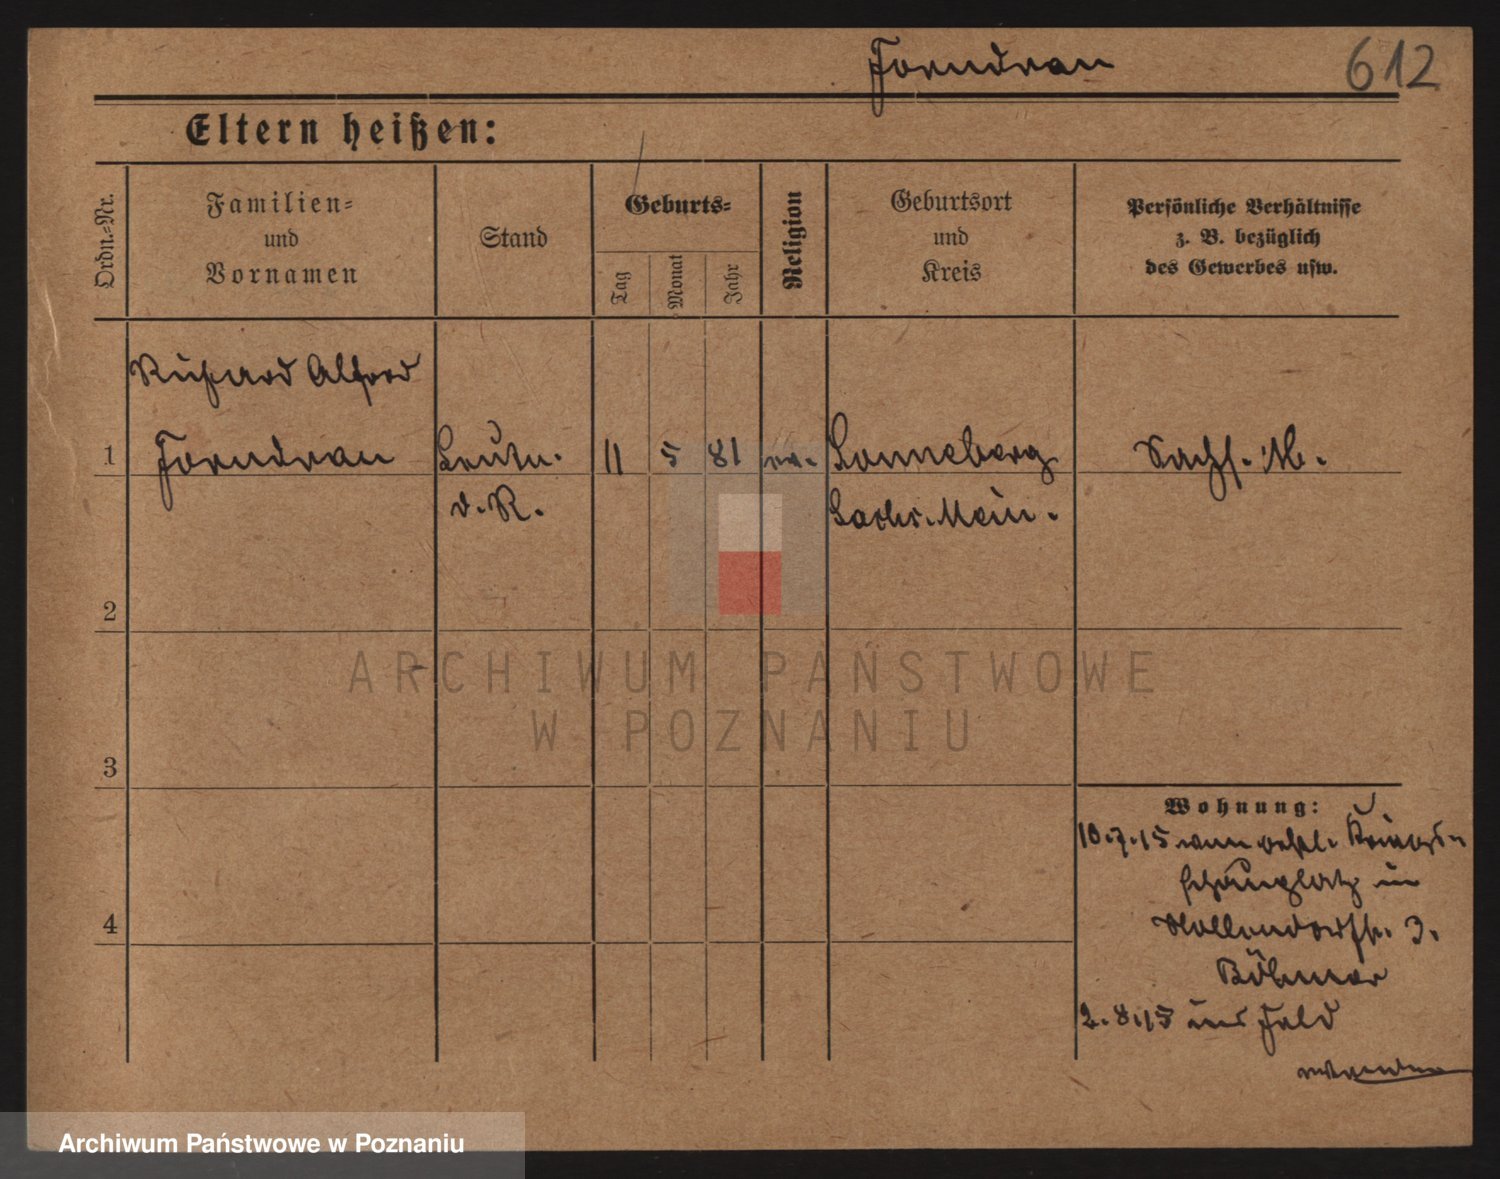 Forndran
612
Eltern heißen:
Ordn.-Nr.
Familien-
und
Vornamen
Stand
Geburts-
Tag
Monat
Jahr
Religion
Geburtsort
und
Kreis
Persönliche Verhältnisse
z. B. bezüglich
des Gewerbes usw.
Richard Alfred
1 Forndran Leutn. 11 5 81 ev. Sonneberg Sachs. M.
d. R. Sachs. Mein.
2
3
4
Wohnung:
10.7.15 vom östl. Kriegs-
schauplatz in
3.
Böhmer
2.8.15 ins Feld
wenden
ARCHIWUM PAŃSTWOWE
W POZNANIU
Archiwum Państwowe w Poznaniu